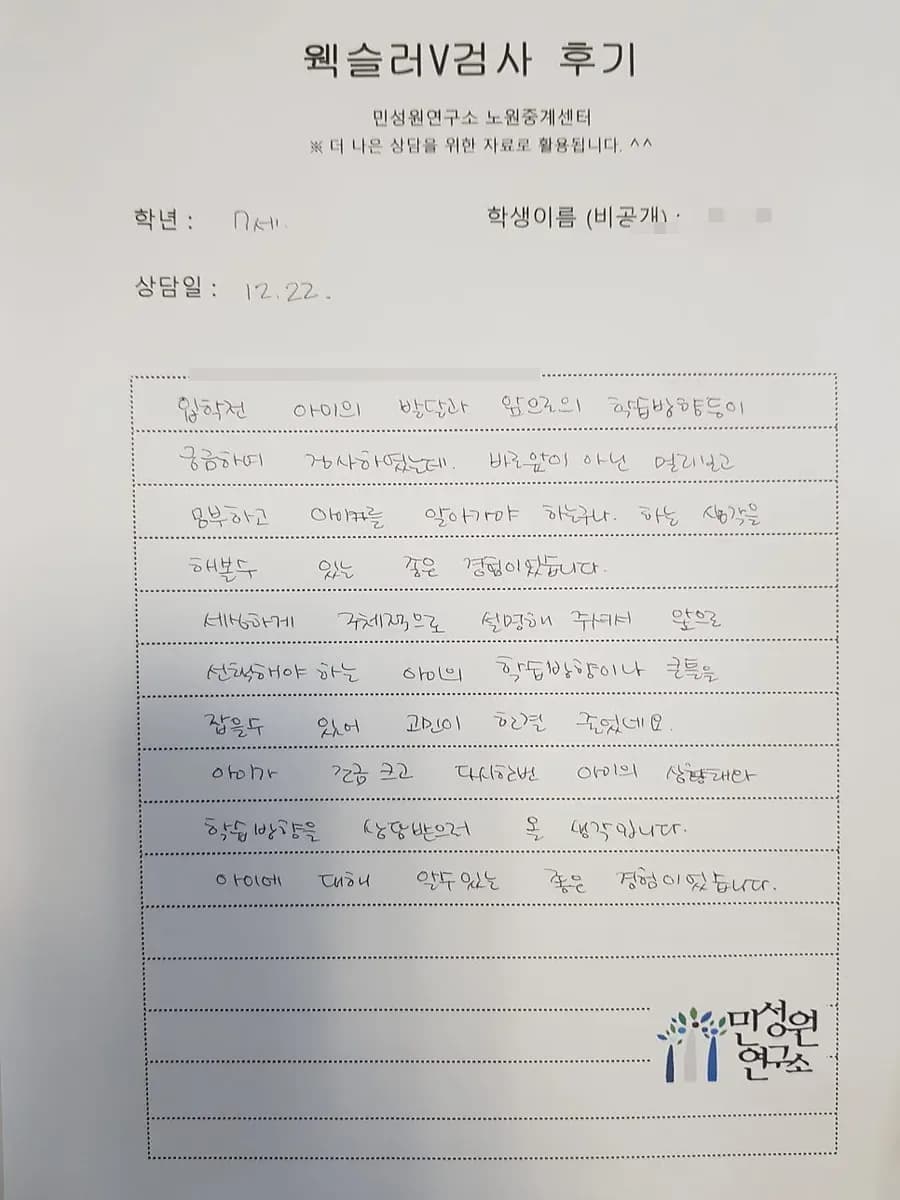 웩슬러V검사 후기
민성원연구소 노원중계센터
※ 더 나은 상담을 위한 자료로 활용됩니다. ^^
학년 : 7세.
학생이름 (비공개) :
상담일 : 12.22.
입학전 아이의 발달과 앞으로의 학습방향등이
궁금하여 검사하였는데. 바로앞이 아닌 멀리보고
공부하고 아이를 알아가야 하는구나. 하는 생각을
해볼수 있는 좋은 경험이었습니다.
세심하게 구체적으로 설명해 주셔서 앞으로
선택해야 하는 아이의 학습방향이나 큰틀을
잡을수 있어 고민이 한결 줄었네요.
아이가 조금 크고 다시한번 아이의 상황대라
학습방향을 상담받으러 올 생각입니다.
아이에 대해 알수있는 좋은 경험이었습니다.
민성원
연구소